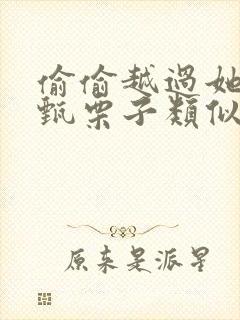 偷偷越過她
甄栗子類似
原来是派星